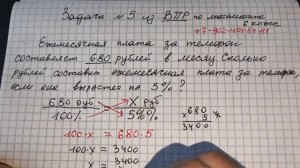 Задача №5 из ВПР по математике
6 класс
+7-902-494-84-81
Ежемесячная плата за телефон
составляет 680 рублей в месяц. Сколько
рублей составит ежемесячная плата за телефон,
если она вырастет на 5%?
680 руб x руб
100% 5%
x 680
5
3400
100·x = 680·5
100·x = 3400
x = 3400